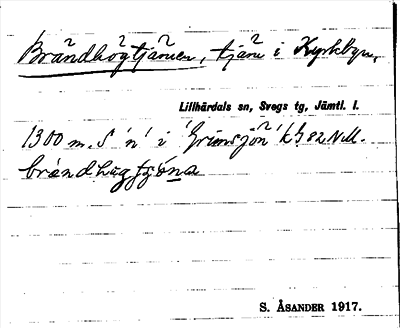 Brändhögtjärnen, tjärn i Kyrkbyn,
Lillhärdals sn, Svegs tg, Jämtl. l.
1300 m. S 'n' i 'Grimsjön' kbl 82 N.M.
brändhøgtjǿna
S. ÅSANDER 1917.